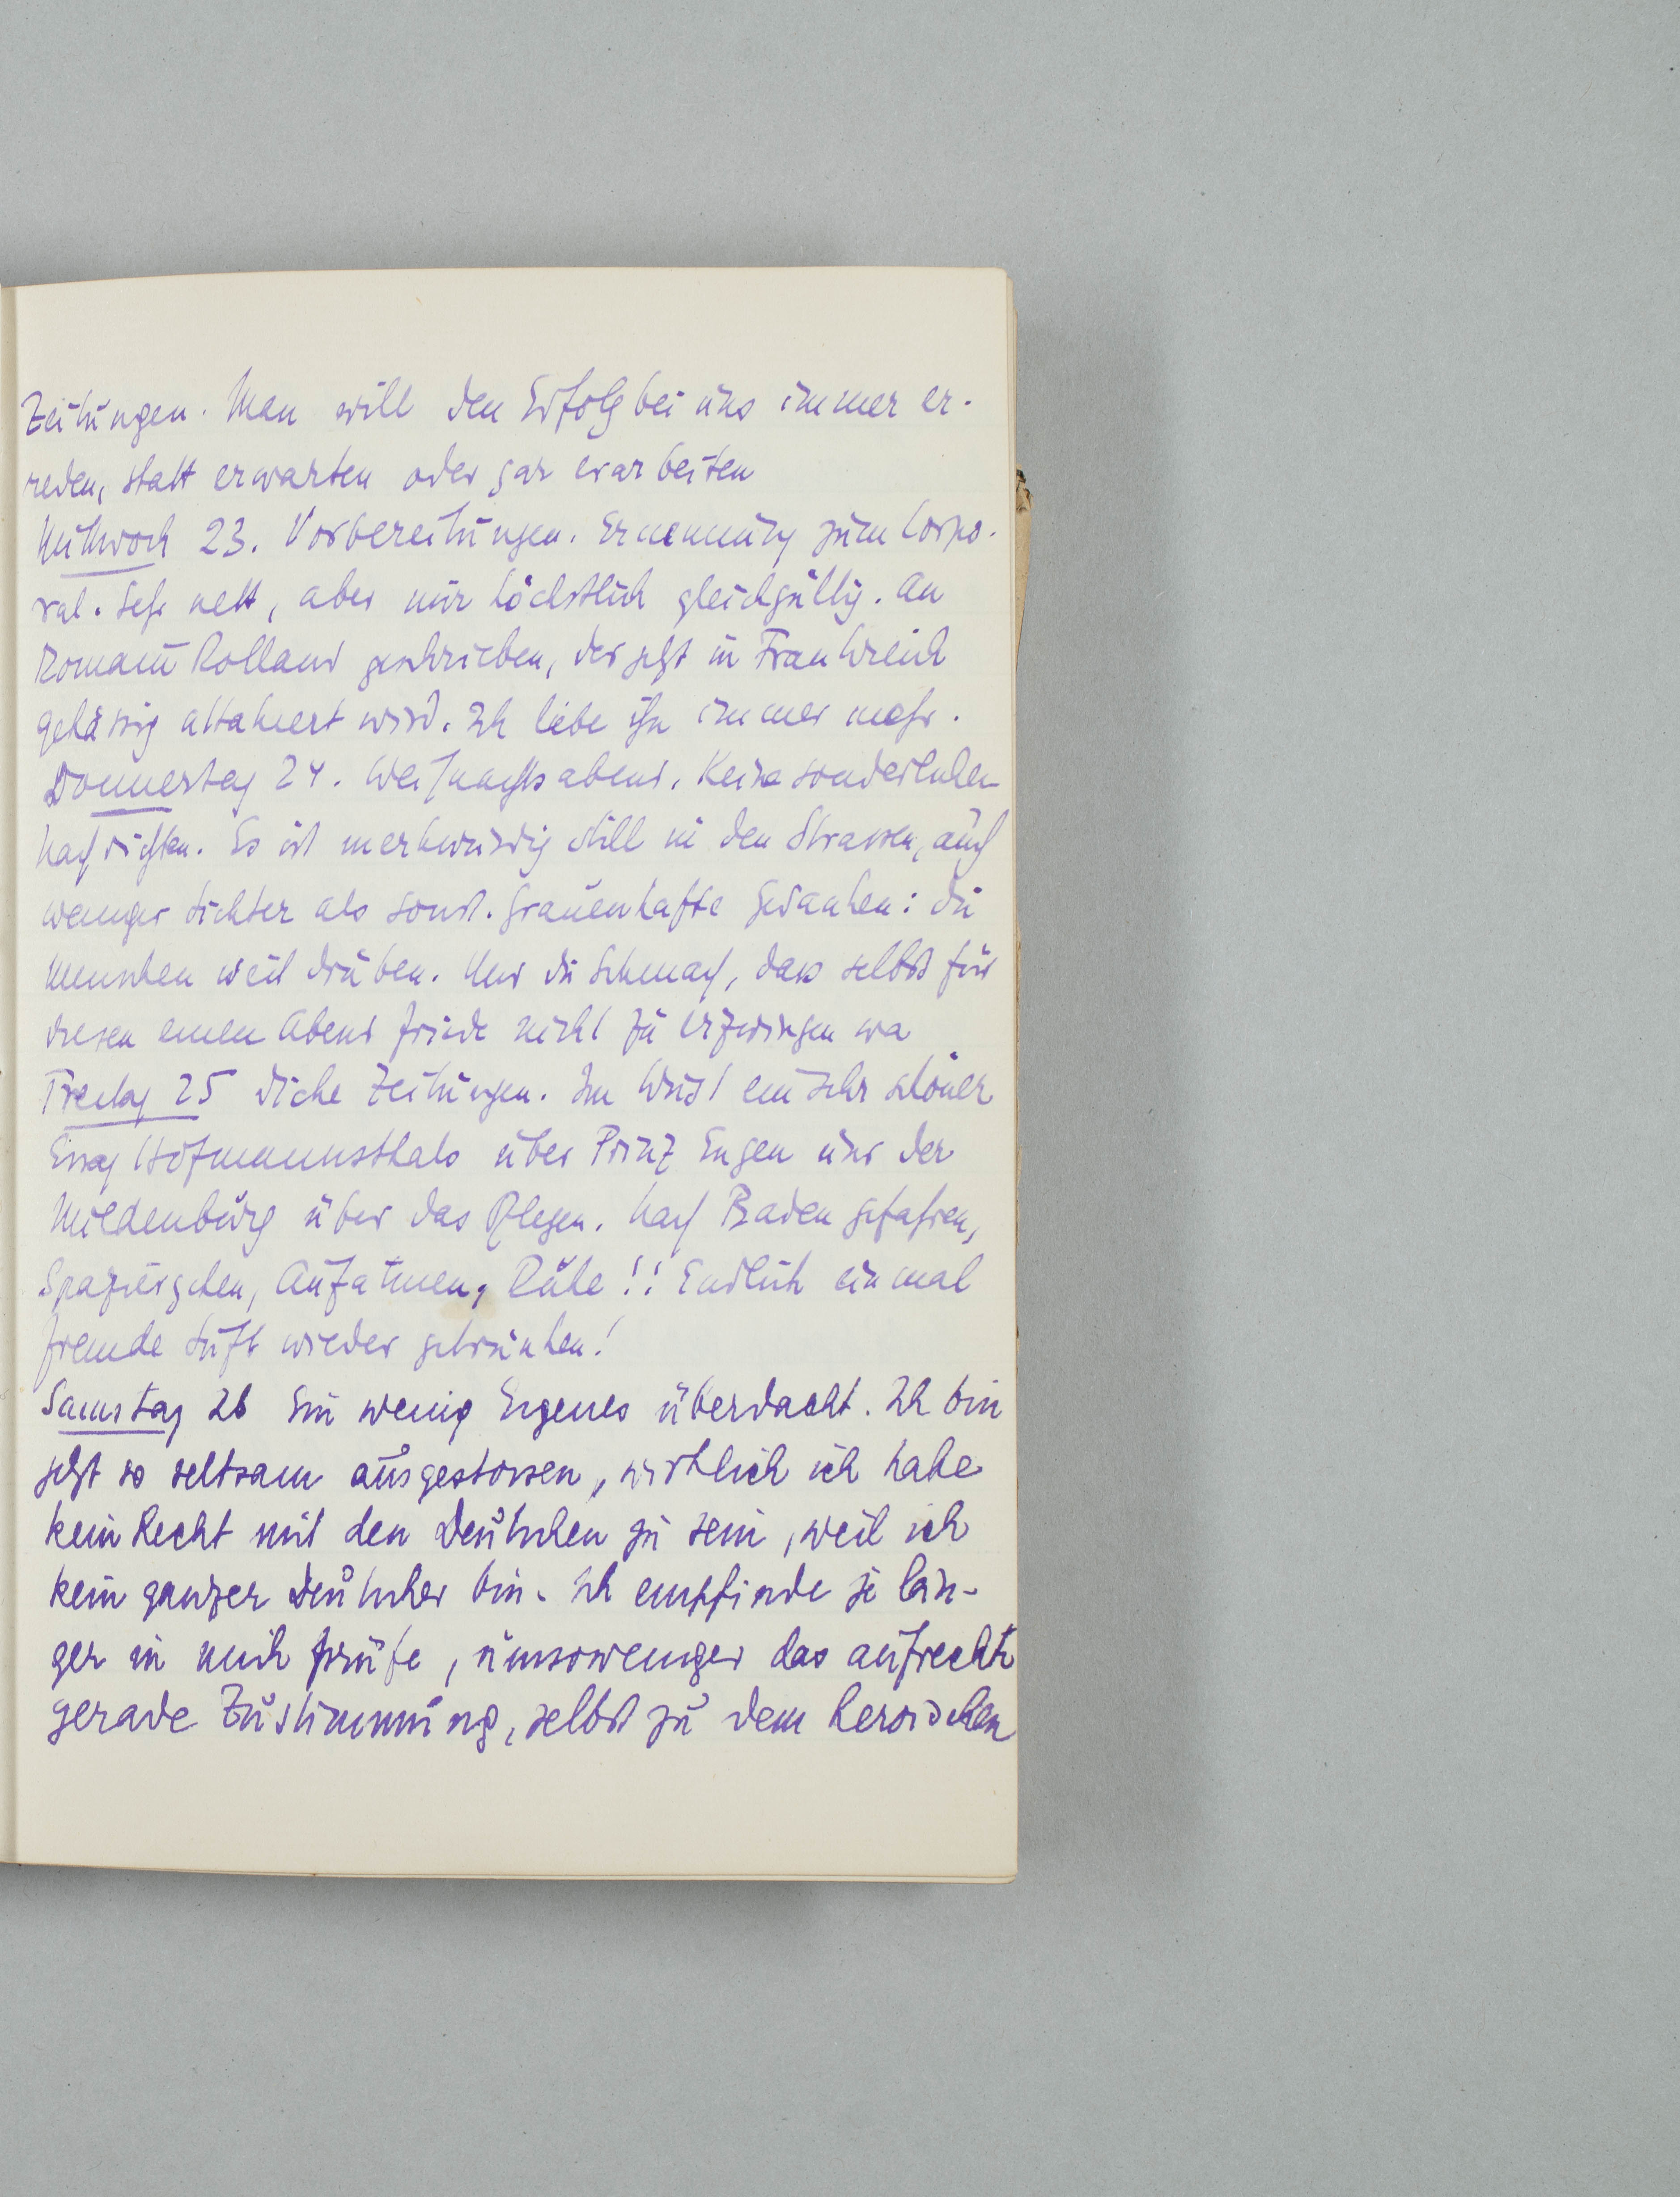 Zeitungen. Man will den Erfolg bei uns immer er-
reden, statt erwarten oder gar erarbeiten
Mittwoch 23. Vorbereitungen. Ernennung zum Corpo-
ral. Sehr nett, aber mir höchstlich gleichgültig. An
Romain Rolland geschrieben, der jetzt in Frankreich
gehässig attakiert wird. Ich liebe ihn immer mehr.
Donnerstag 24. Weihnachtsabend. Keine sonderlichen
Nachrichten. Es ist merkwürdig still in den Strassen, auch
weniger Lichter als sonst. Grauenhafte Gedanken: die
Menschen weit drüben. Und die Schmach, dass selbst für
diesen einen Abend Friede nicht zu erzwingen wa
Freitag 25 Dicke Zeitungen. Im Wust ein sehr schöner
Essay Hofmannsthals über Prinz Eugen und der
Mildenburg über das Pflegen. Nach Baden gefahren,
Spaziergehen, Aufatmen, Ruhe!! Endlich einmal
fremde Luft wieder getrunken!
Samstag 26 Ein wenig Eigenes überdacht. Ich bin
jetzt so seltsam ausgestossen, wirklich ich habe
kein Recht mit den Deutschen zu sein, weil ich
kein ganzer Deutscher bin. Ich empfinde je län-
ger ich mich prüfe, umsoweniger das aufrechte
gerade Zustimmung, selbst zu dem heroischen